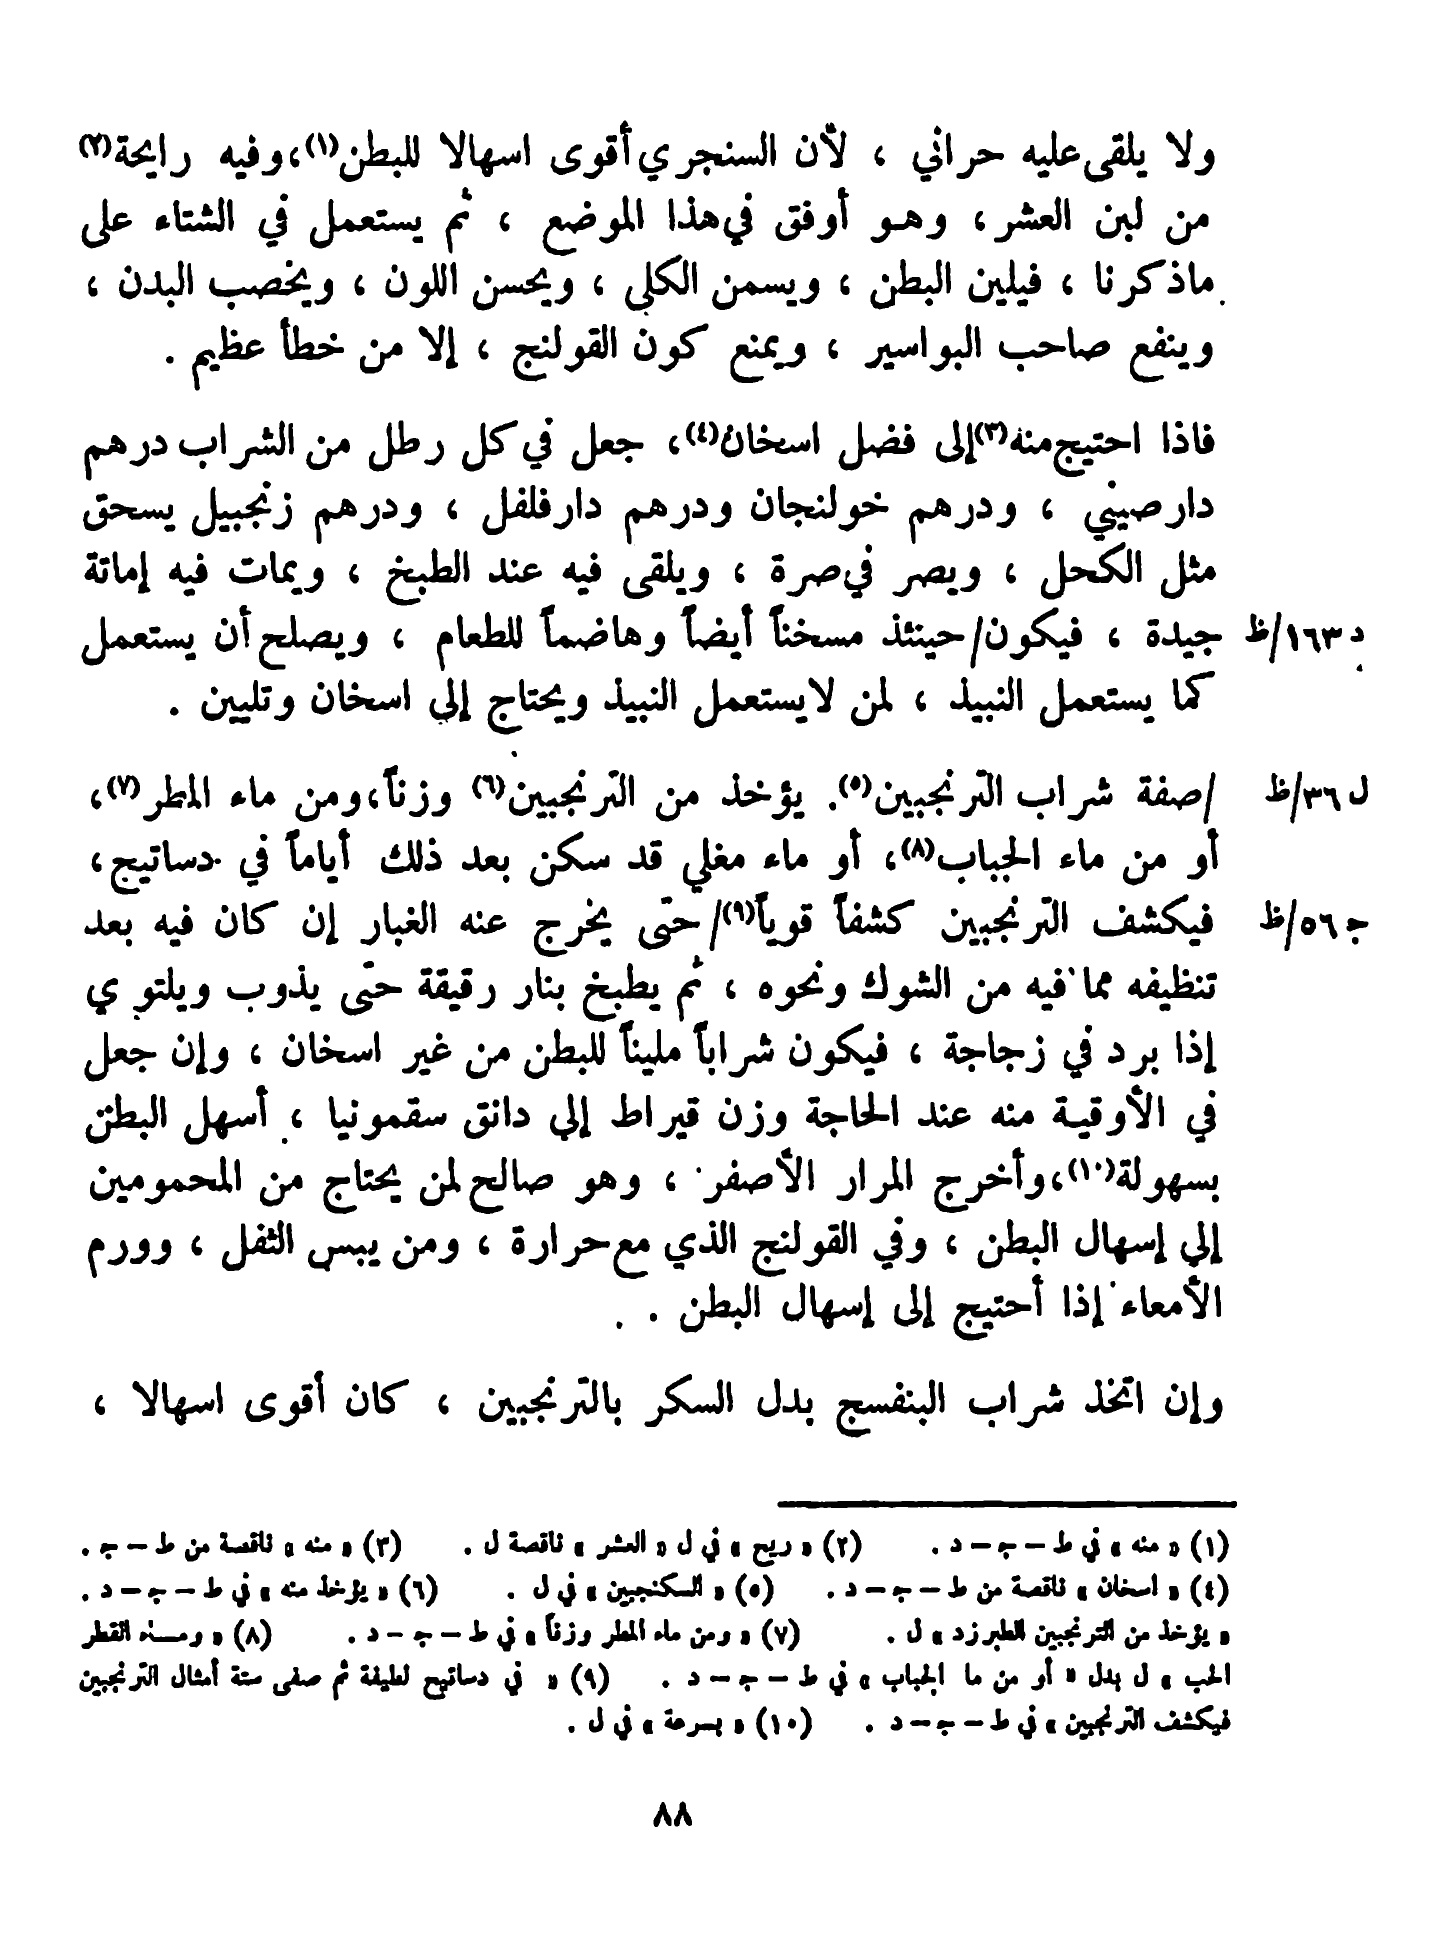 ولا يلقى عليه حراني ، لأن السنجري أقوى اسهالا للبطن(١)، وفيه رايحة(٢)
من لبن العشر ، وهو أوفق في هذا الموضع ، ثم يستعمل في الشتاء على
ماذكرنا ، فيلين البطن ، ويسمن الكلى ، ويحسن اللون ، ويخصب البدن ،
وينفع صاحب البواسير ، ويمنع كون القولنج ، إلا من خطأ عظيم .
فاذا احتيج منه(٣) إلى فضل اسخان(٤)، جعل في كل رطل من الشراب درهم
دارصيني ، ودرهم خولنجان ودرهم دارفلفل ، ودرهم زنجبيل يسحق
مثل الكحل ، ويصر في صرة ، ويلقى فيه عند الطبخ ، ويمات فيه إماتة
د ١٦٣/ظ جيدة ، فيكون/حينئذ مسخناً أيضاً وهاضماً للطعام ، ويصلح أن يستعمل
كما يستعمل النبيذ ، لمن لا يستعمل النبيذ ويحتاج إلى اسخان وتليين .
ل ٣٦/ظ /صفة شراب الترنجبين(٥). يؤخذ من الترنجبين(٦) وزناً، ومن ماء المطر(٧)،
أو من ماء الجباب(٨)، أو ماء مغلي قد سكن بعد ذلك أياماً في دساتيج،
ج ٥٦/ظ فيكشف الترنجبين كشفاً قوياً(٩)/حتى يخرج عنه الغبار إن كان فيه بعد
تنظيفه مما فيه من الشوك ونحوه ، ثم يطبخ بنار رقيقة حتى يذوب ويلتوي
إذا برد في زجاجة ، فيكون شراباً مليناً للبطن من غير اسخان ، وإن جعل
في الأوقية منه عند الحاجة وزن قيراط إلى دانق سقمونيا ، أسهل البطن
بسهولة(١٠)، وأخرج المرار الأصفر ، وهو صالح لمن يحتاج من المحمومين
إلى إسهال البطن ، وفي القولنج الذي مع حرارة ، ومن يبس الثفل ، وورم
الأمعاء إذا أحتيج إلى إسهال البطن . .
وإن اتخذ شراب البنفسج بدل السكر بالترنجبين ، كان أقوى اسهالا ،
(١) « منه » في ط – ج – د . (٢) « ريح » في ل « العشر » ناقصة ل . (٣) « منه » ناقصة من ط – ج .
(٤) « اسخان » ناقصة من ط – ج – د . (٥) « السكنجبين » في ل . (٦) « يؤخذ منه » في ط – ج – د .
« يؤخذ من الترنجبين الطبرزد » ل . (٧) « ومن ماء المطر وزناً » في ط – ج – د . (٨) « ومــاء القطر
الحب » ل بدل « أو من ما الجباب » في ط – ج – د . (٩) « في دساتيج لطيفة ثم صفى ستة أمثال الترنجبين
فيكشف الترنجبين » في ط – ج – د . (١٠) « بسرعة » في ل .
٨٨